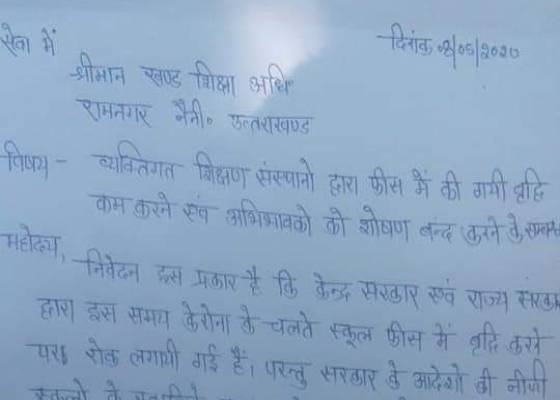 सेवा में
दिनांक 08/05/2020
श्रीमान खण्ड शिक्षा अधि
रामनगर नैनी० उत्तराखण्ड
विषय - व्यक्तिगत शिक्षण संस्थानो द्वारा फीस में की गयी वृद्वि
कम करने एवं अभिभावको को शोषण बन्द करने के सम्बन्ध
महोदय,
निवेदन इस प्रकार है कि केन्द्र सरकार एवं राज्य सरकार
द्वारा इस समय केरोना के चलते स्कूल फीस में वृद्वि करने
पर रोक लगायी गई है। परन्तु सरकार के आदेशो की नीजी
स्कूलो के